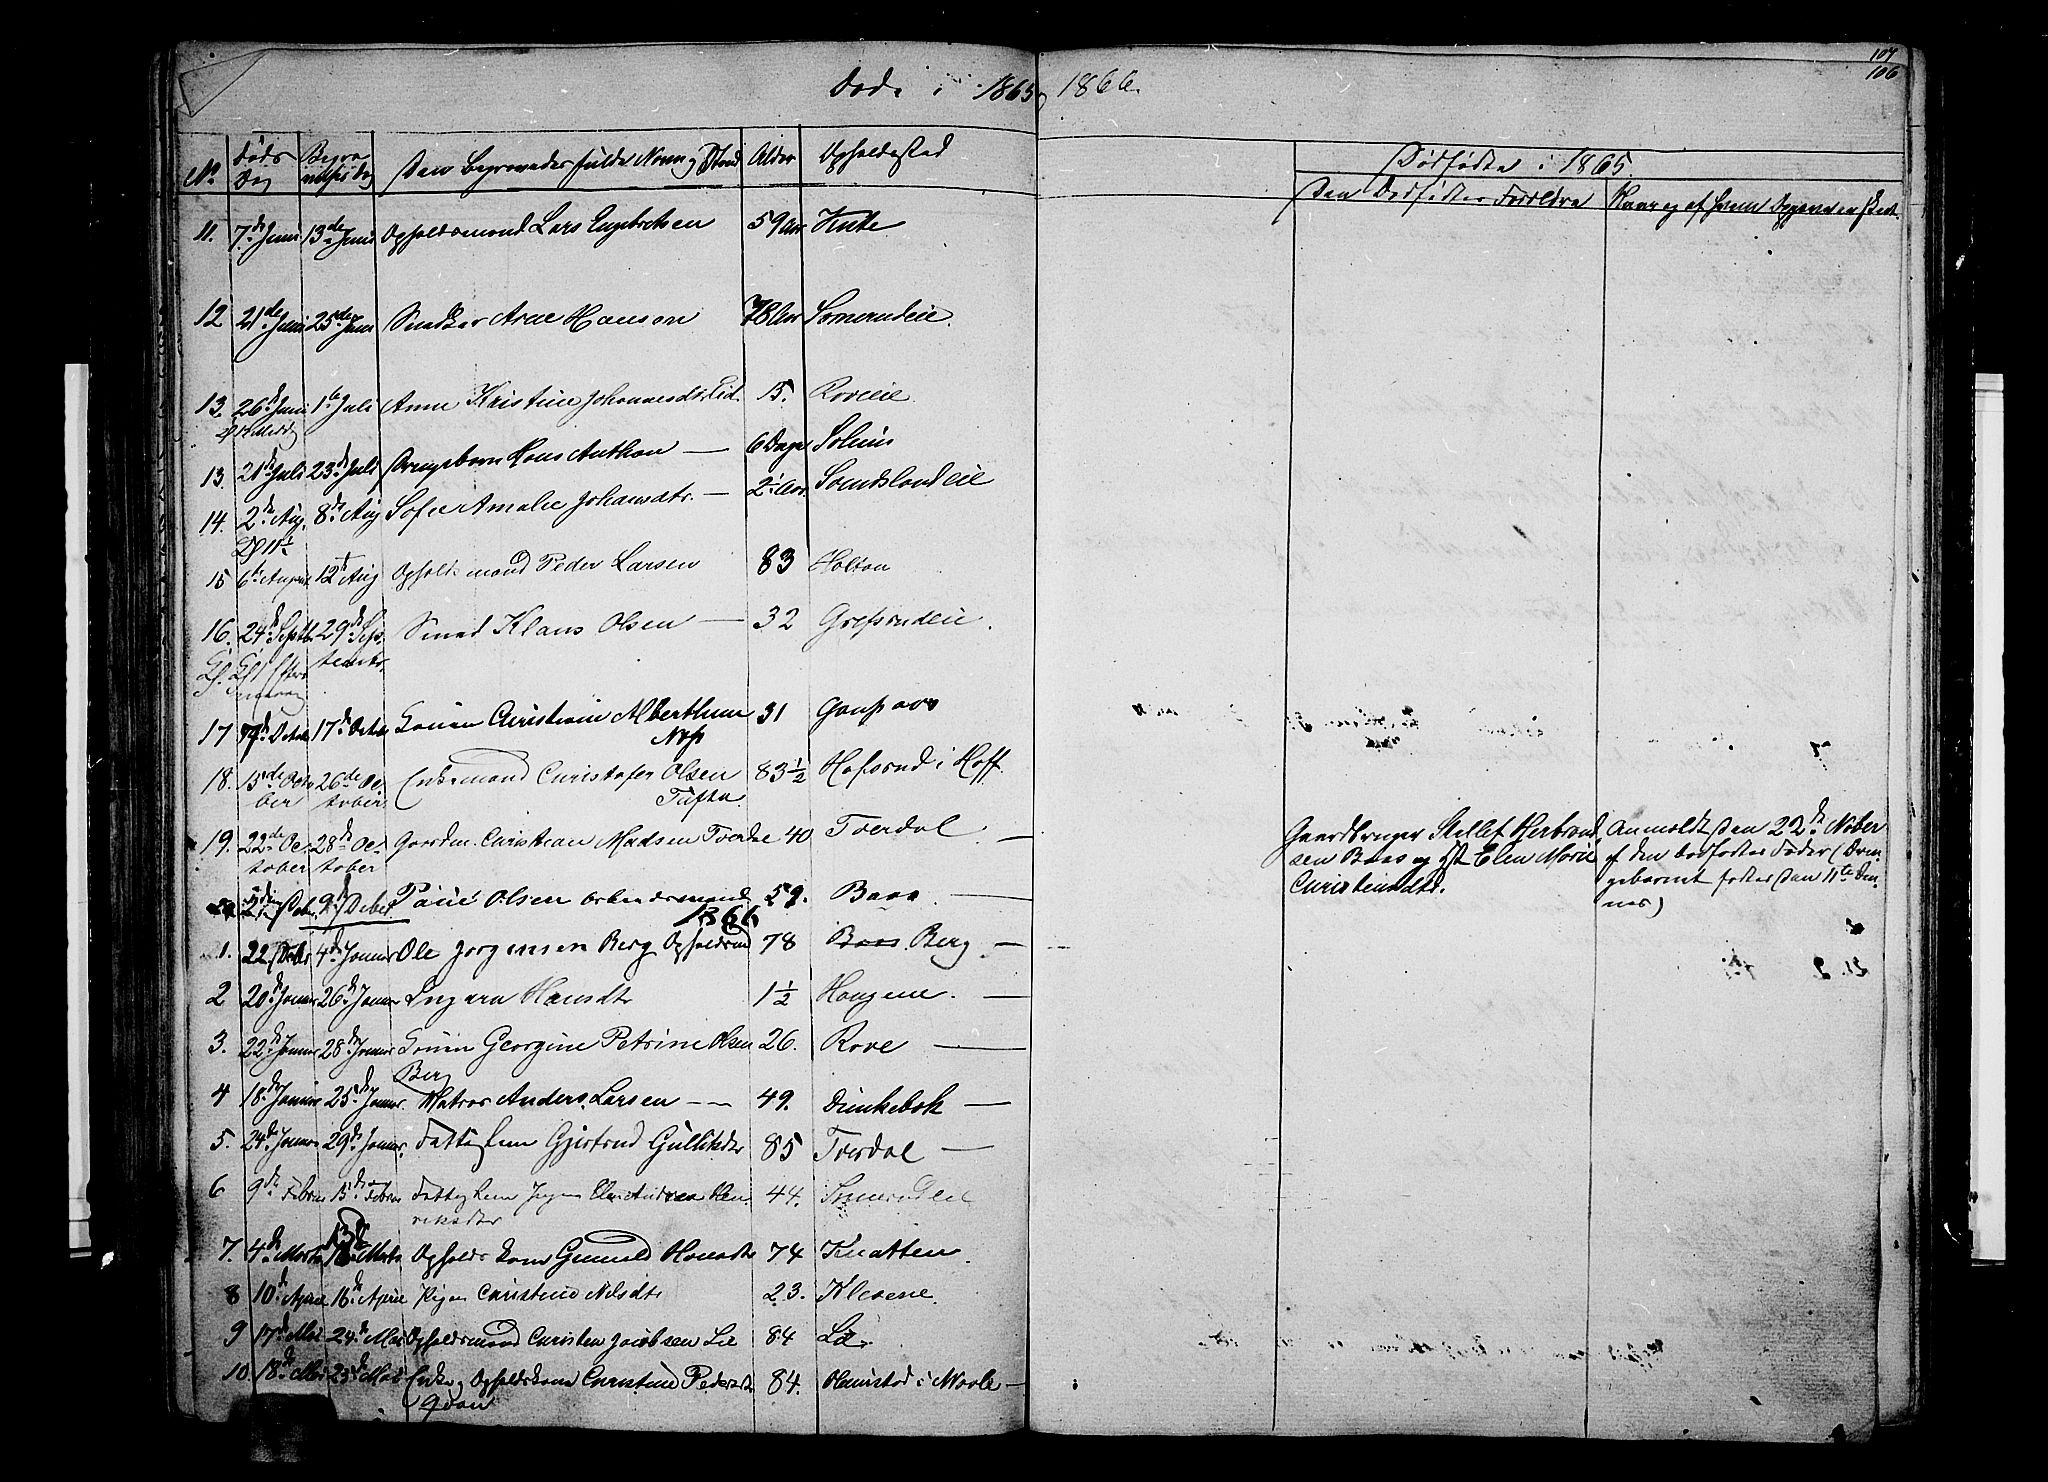 107
106
Døde i 1865 1866.
No Døds Dag Begravelsesdag Den Begravedes fulde Navn og Stand Alder Opholdssted
11. 7de Juni 13de Juni Opholdsmand Lars Engebretsen 59 Aar Knte
12 21de Juni 25de Juni Snedker Arne Hansen 78 Aar Somerudeie.
13. 26de Juni 1ste Juli Anne Kristine Johannesdtr Eid. 15. Roveeie
13. 21de Juli 23de Juli Drengebarn Hans Anthon — 6 Dage Solum
14. 2de Aug. 8de Aug Sofie Amalie Johansdtr. — 2 Aar Sandslandeie
15 6te August 12te Aug Opholdsmand Peder Larsen 83 Holtan
16. 24de Septbr 29de September Smed Klaus Olsen — 32 Grefsrudeie.
17 7de Octob 17de Octob Konen Christiane Alberthine 31
18. 15de October 26de October Enkemand Christofer Olsen 83½ Hafsrud i Hoff
Tufte
19. 22de October 28de October Gaardm. Christian Madsen Tverdal 40 Tverdal —
9de Deber Olsen Arbeidsmand 59. Baas —
1866
1. 22 Deber 4de Januar Ole Jørgensen Berg Opholdsmd 78 Baas. Berg —
2 20de Januar 26de Januar Hansdtr 1½ Haugene. —
3. 22de Januar 28de Januar Konen Georgine Petrine Olsen 26. Rove —
Berg
4 18de Januar 25de Januar. Matros Anders Larsen — 49. Dunkebek —
5. 24de Januar 29de Januar. Fattiglem Gjertrud Gulliksdtr 85 Tverdal —
6 9de Februar 15de Februar Fattiglem Pigen Andrea Henriksdtr 44.
7. 4de Marts 13de Marts Opholdskone Gunild Hansdtr 74 Knatten
8 10de April 16de April Pigen Christine Nilsdtr 23. Klevene.
9 17de Mai 24de Mai Opholdsmand Christen Jacobsen Lie 84 Lie.
10 18de Mai 23de Mai Enke og Opholdskone Christine Pedersdtr 84. i Vaale —
Dødfødte i 1865.
Den Dødfødtes Forældre Naar og af hvem Opgivelsen skeet
Gaardbruger Stellef Herbrand
sen Baas og Hst Elen Marie
Christensdtr.
Anmeldt den 22de Nober
af den dødfødtes Fader (Dren-
gebarnet fødtes den 11te Den-
nes)